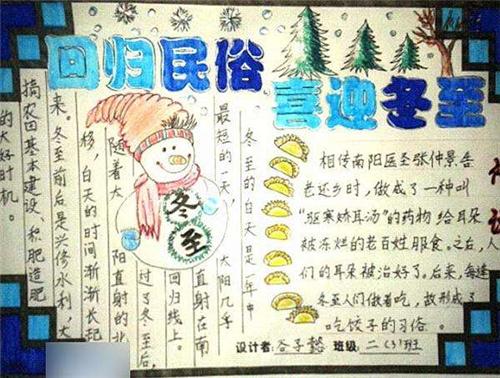 回归民俗
喜迎冬至
冬至的白天是一年中
最短的一天，太阳几乎
直射在南
回归线上。
过了冬至后，
随着太阳直射的北
移，白天的时间渐渐长起
来。冬至前后是兴修水利，大
搞农田基本建设、积肥造肥
的大好时机。
冬至
相传南阳医圣张仲景告
老还乡时，做成了一种叫
“驱寒娇耳汤”的药物 给耳朵
被冻烂的老百姓服食。之后，人
们的耳朵被治好了。后来，每逢
冬至人们做着吃，故形成了
吃饺子的习俗。
设计者：谷子懿 班级：二（3）班